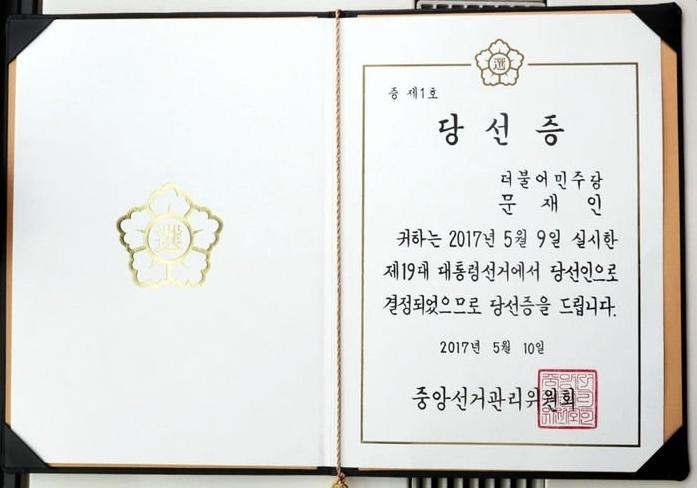 選
選
증 제1호
당선증
더불어민주당
문재인
귀하는 2017년 5월 9일 실시한
제19대 대통령선거에서 당선인으로
결정되었으므로 당선증을 드립니다.
2017년 5월 10일
중앙선거관리위원회